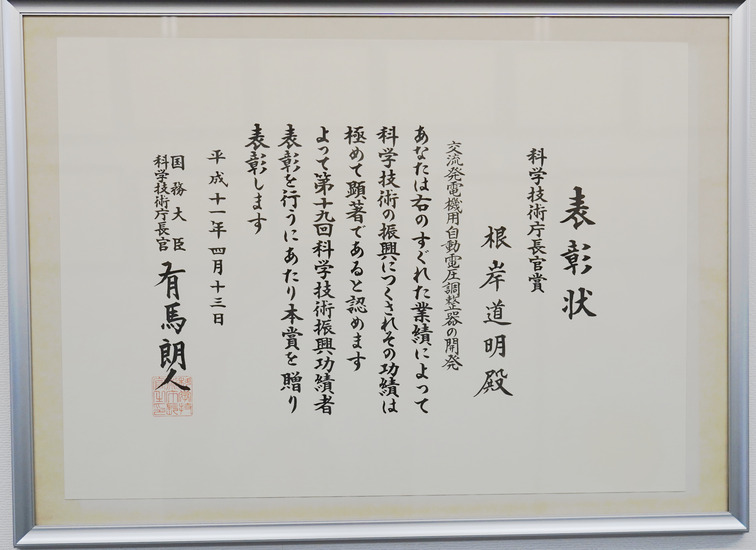 表彰状
科学技術庁長官賞
根岸道明殿
交流発電機用自動電圧調整器の開発
あなたは右のすぐれた業績によって
科学技術の振興につくされその功績は
極めて顕著であると認めます
よって第十九回科学技術振興功績者
表彰を行うにあたり本賞を贈り
表彰します
平成十一年四月十三日
国務大臣
科学技術庁長官
有馬朗人